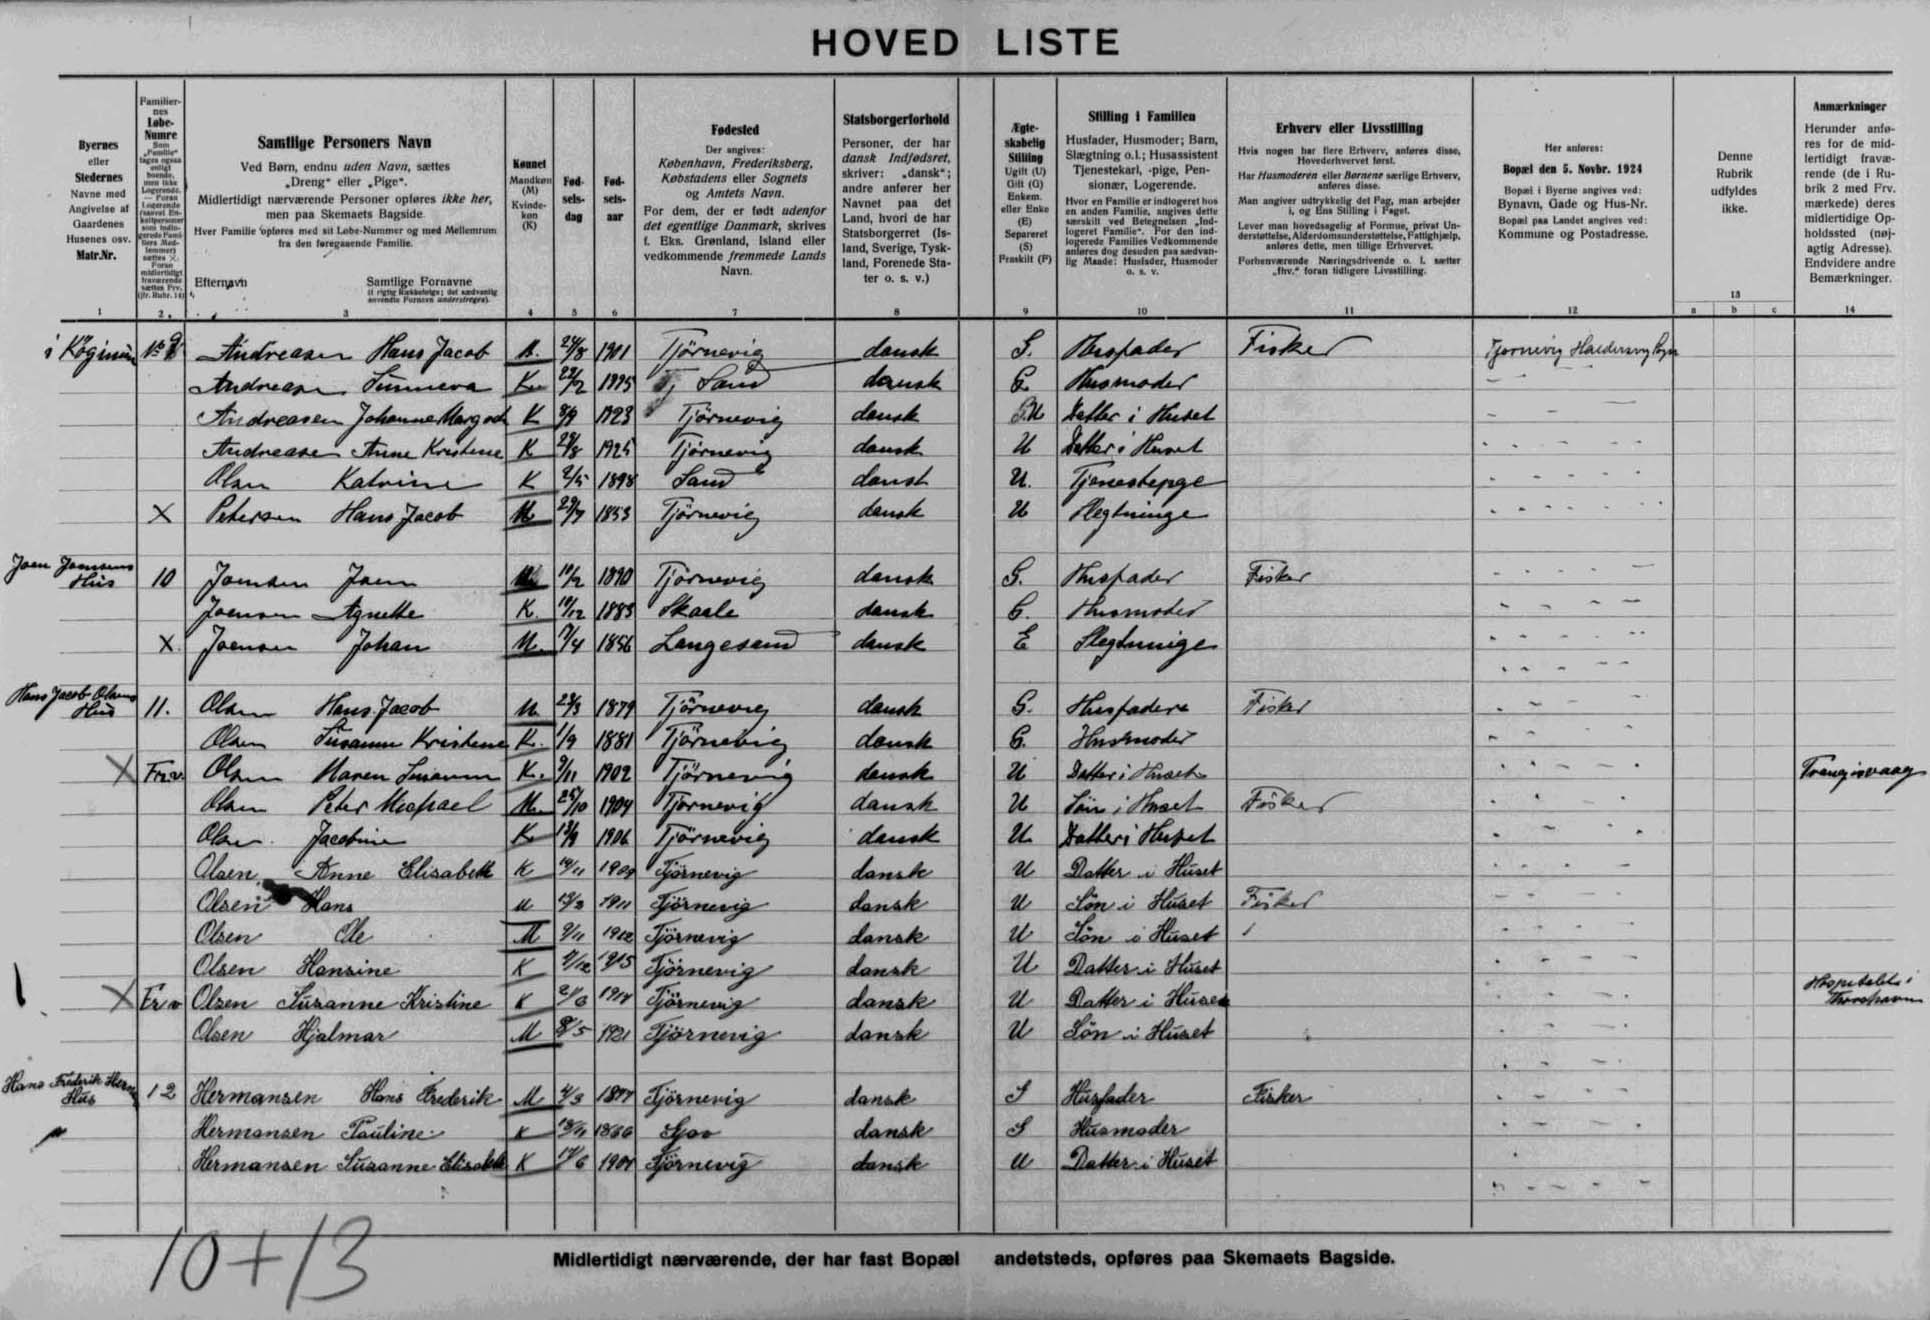 HOVED LISTE
Byernes
eller
Stedernes
Navne med
Angivelse af
Gaardenes
Husenes osv.
Matr.Nr.
Familier-
nes
Løbe-
Numre
Samtlige Personers Navn
Ved Børn, endnu uden Navn, sættes
„Dreng“ eller „Pige“.
Midlertidigt nærværende Personer opføres ikke her,
men paa Skemaets Bagside.
Hver Familie opføres med sit Løbe-Nummer og med Mellemrum
fra den føregaaende Familie.
Efternavn Samtlige Fornavne
(i rigtig Rækkefølge; det sædvanlig
anvendte Fornavn understreges).
Kønnet
Mandkøn
(M)
Kvinde-
køn
(K)
Fød-
sels-
dag
Fød-
sels-
aar
Fødested
Der angives:
København, Frederiksberg,
Købstadens eller Sognets
og Amtets Navn.
For dem, der er født udenfor
det egentlige Danmark, skrives
f. Eks. Grønland, Island eller
vedkommende fremmede Lands
Navn.
Statsborgerforhold
Personer, der har
dansk Indfødsret,
skriver: „dansk“;
andre anfører her
Navnet paa det
Land, hvori de har
Statsborgerret (Is-
land, Sverige, Tysk-
land, Forenede Sta-
ter o. s. v.)
Ægte-
skabelig
Stilling
Ugift (U)
Gift (G)
Enkem.
eller Enke
(E)
Separeret
(S)
Fraskilt (F)
Stilling i Familien
Husfader, Husmoder; Barn,
Slægtning o.l.; Husassistent
Tjenestekarl, -pige, Pen-
sionær, Logerende.
Hvor en Familie er indlogeret hos
en anden Familie, angives dette
særskilt ved Betegnelsen „Ind-
logeret Familie“. For den ind-
logerede Families Vedkommende
anføres dog desuden paa sædvan-
lig Maade: Husfader, Husmoder
o. s. v.
Erhverv eller Livsstilling
Hvis nogen har flere Erhverv, anføres disse,
Hovederhvervet først.
Har Husmoderen eller Børnene særlige Erhverv,
anføres disse.
Man angiver udtrykkelig det Fag, man arbejder
i, og Ens Stilling i Faget.
Lever man hovedsagelig af Formue, privat Un-
derstøttelse, Alderdomsunderstøttelse, Fattighjælp,
anføres dette, men tillige Erhvervet.
Forhenværende Næringsdrivende o. l. sætter
„fhv.“ foran tidligere Livsstilling.
Her anføres:
Bopæl den 5. Novbr. 1924
Bopæl i Byerne angives ved:
Bynavn, Gade og Hus-Nr.
Bopæl paa Landet angives ved:
Kommune og Postadresse.
Denne
Rubrik
udfyldes
ikke.
Anmærkninger
Herunder anfø-
res for de mid-
lertidigt fravæ-
rende (de i Ru-
brik 2 med Frv.
mærkede) deres
midlertidige Op-
holdssted (nøj-
agtig Adresse).
Endvidere andre
Bemærkninger.
1 2 3 4 5 6 7 8 9 10 11 12 13 a b c 14
Andreasen Hans Jacob M. 1901 Tjørnevig dansk G. Husfader Fisker Tjørnevig Haldersvig Sogn
Andreasen Sunneva K Sand dansk G. Husmoder
Andreasen Johanne K 1923 Tjørnevig dansk U Datter i Huset
Andreasen Anne Kristine K 1925 Tjørnevig dansk U Datter i Huset
Olsen Katrine K 2/5 1898 Sand dansk U. Tjenestepige
X Petersen Hans Jacob M 1853 Tjørnevig dansk U Slegtninge
Joen Joensens
Hus 10 Joensen Joen M 1890 Tjørnevig dansk G. Husfader Fisker
Joensen Agnethe K. 1883 Skaale dansk G. Husmoder
X Joensen Johan M. 1856 Langesand dansk E Slegtninge
Hans Jacob Olsens
Hus 11. Olsen Hans Jacob M 1879 Tjørnevig dansk G. Husfader Fisker
Olsen Susanne Kristine K. 1/9 1881 Tjørnevig dansk G. Husmoder
X Frv. Olsen Maren Susanna K. 9/11 1902 Tjørnevig dansk U Datter i Huset Trangisvaag
Olsen Peter Mikael M. 25/10 1904 Tjørnevig dansk U Søn i Huset Fisker
Olsen Jacobine K 1906 Tjørnevig dansk U Datter i Huset
Olsen Anne Elisabeth K 1909 Tjørnevig dansk U Datter i Huset
Olsen Hans M 1911 Tjørnevig dansk U Søn i Huset Fisker
Olsen Ole M 9/11 1912 Tjørnevig dansk U Søn i Huset
Olsen Hansine K 1915 Tjørnevig dansk U Datter i Huset
X Frv Olsen Susanne Kristine K Tjørnevig dansk U Datter i Huset Hospitalet i
Thorshavn
Olsen Hjalmar M 1921 Tjørnevig dansk U Søn i Huset
Hans Frederik Herm
Hus 12 Hermansen Hans Frederik M 4/3 Tjørnevig dansk Husfader Fisker
Hermansen Pauline K 1866 dansk Husmoder
Hermansen Susanne Elisabeth K Tjørnevig dansk U Datter i Huset
10+13
Midlertidigt nærværende, der har fast Bopæl andetsteds, opføres paa Skemaets Bagside.